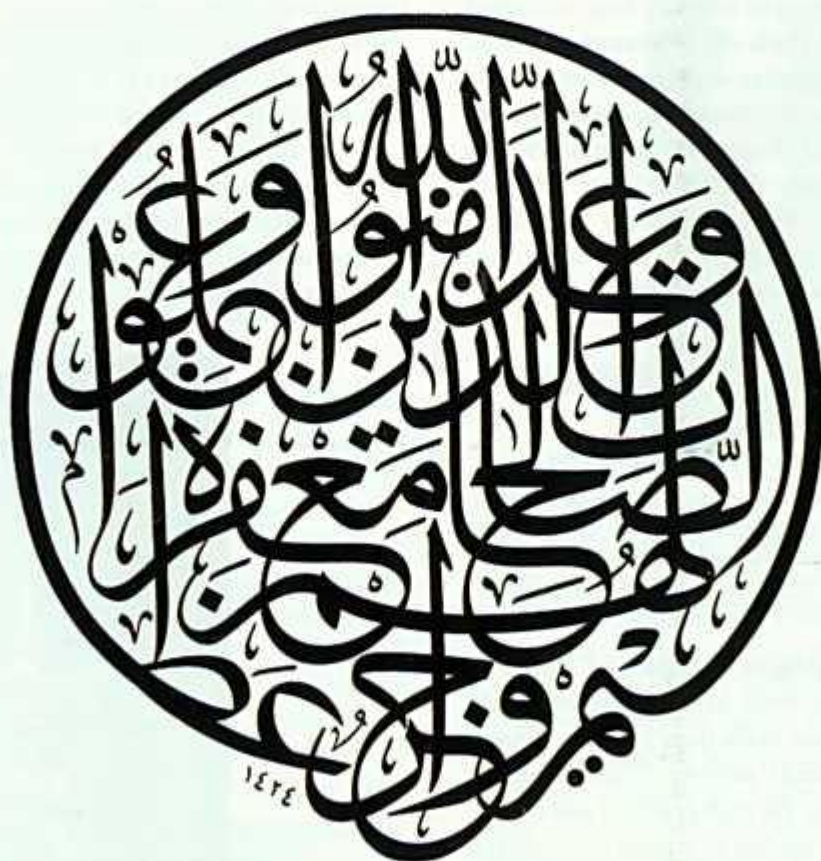 وعد الله الذين امنوا وعملوا الصالحات لهم مغفرة واجر عظيم
١٤٢٤